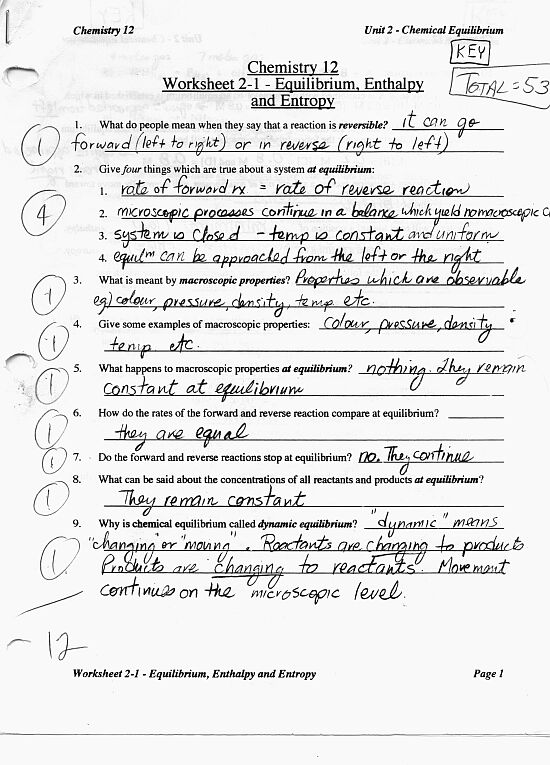 Chemistry 12 Unit 2 - Chemical Equilibrium
KEY
TOTAL = 53
Chemistry 12
Worksheet 2-1 - Equilibrium, Enthalpy
and Entropy
1. What do people mean when they say that a reaction is reversible? it can go
forward (left to right) or in reverse (right to left)
1
2. Give four things which are true about a system at equilibrium:
1. rate of forward rx = rate of reverse reaction
4
2. microscopic processes continue in a balance which yield no macroscopic c
3. system is closed - temp is constant and uniform
4. equilm can be approached from the left or the right
3. What is meant by macroscopic properties? Properties which are observable
1
eg) colour, pressure, density, temp etc.
4. Give some examples of macroscopic properties: colour, pressure, density
1
temp. etc.
5. What happens to macroscopic properties at equilibrium? nothing. They remain
1
constant at equilibrium
6. How do the rates of the forward and reverse reaction compare at equilibrium?
1
they are equal
1
7. Do the forward and reverse reactions stop at equilibrium? no. They continue
8. What can be said about the concentrations of all reactants and products at equilibrium?
1
They remain constant
9. Why is chemical equilibrium called dynamic equilibrium? "dynamic" means
"changing" or "moving". Reactants are changing to products
1
Products are changing to reactants. Movement
continues on the microscopic level.
12
Worksheet 2-1 - Equilibrium, Enthalpy and Entropy Page 1